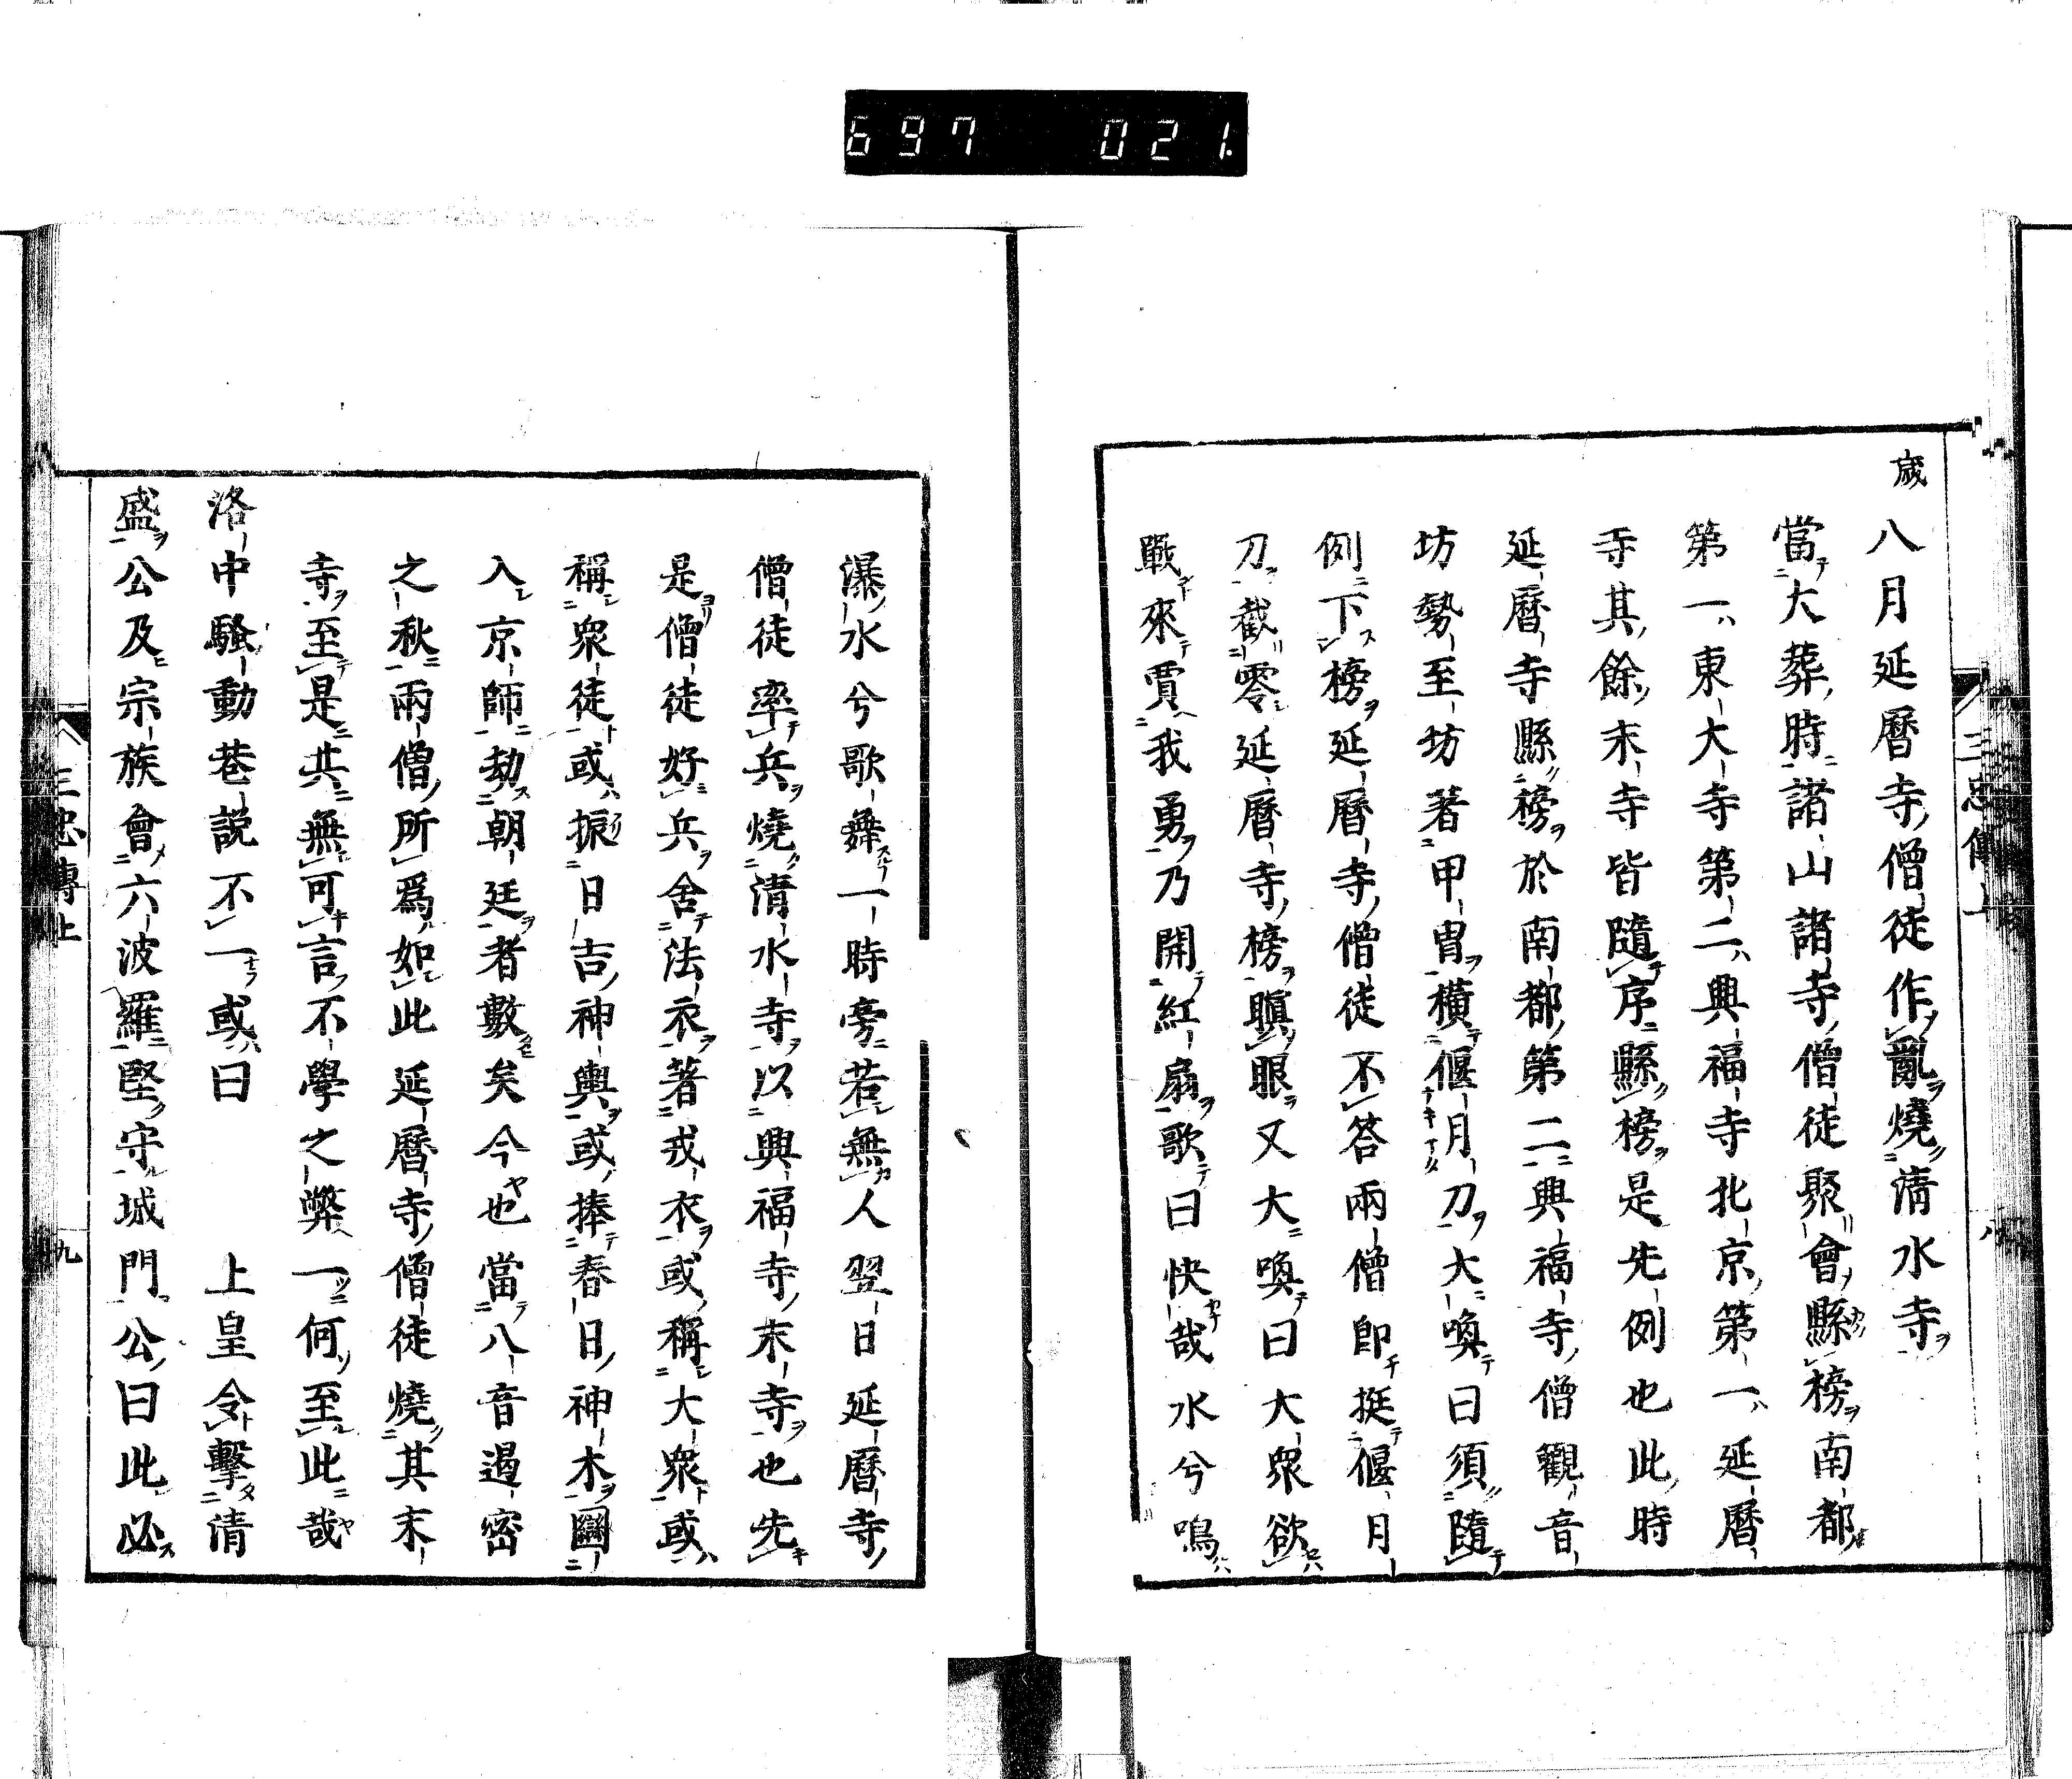 697 021
三忠傳上
八
歲
八月延曆寺僧徒作亂燒清水寺
當大葬時諸山諸寺僧徒聚會縣榜南都
第一東大寺第二興福寺北京第一延曆
寺其餘末寺皆隨序縣榜是先例也此時
延曆寺縣榜於南都第二興福寺僧觀音
坊勢至坊著甲冑橫偃月刀大喚曰須隨
例下榜延曆寺僧徒不答兩僧即挺偃月
刀截零延曆寺榜瞋眼又大喚曰大衆欲
戰來賈我勇乃開紅扇歌曰快哉水兮鳴
瀑水兮歌舞一時旁若無人翌日延曆寺
僧徒率兵燒清水寺以興福寺末寺也先
是僧徒好兵舍法衣著戎衣或稱大衆或
稱衆徒或振日吉神輿或捧春日神木闌
入京師劫朝廷者數矣今也當八音遏密
之秋兩僧所爲如此延曆寺僧徒燒其末
寺至是共無可言不學之弊一何至此哉
洛中騷動巷說不一或曰 上皇令擊清
盛公及宗族會六波羅堅守城門公曰此必
三忠傳上
九